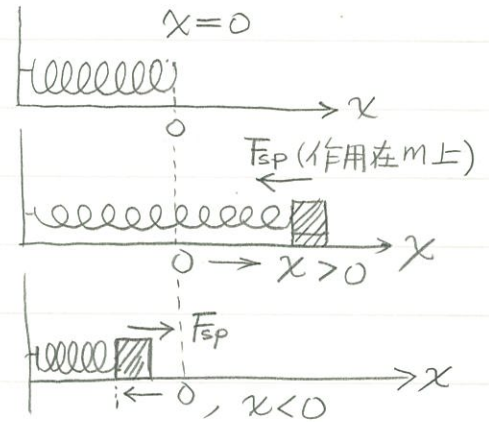 x=0
x
0
Fsp (作用在m上)
x
0 → x>0
Fsp
x
← 0, x<0